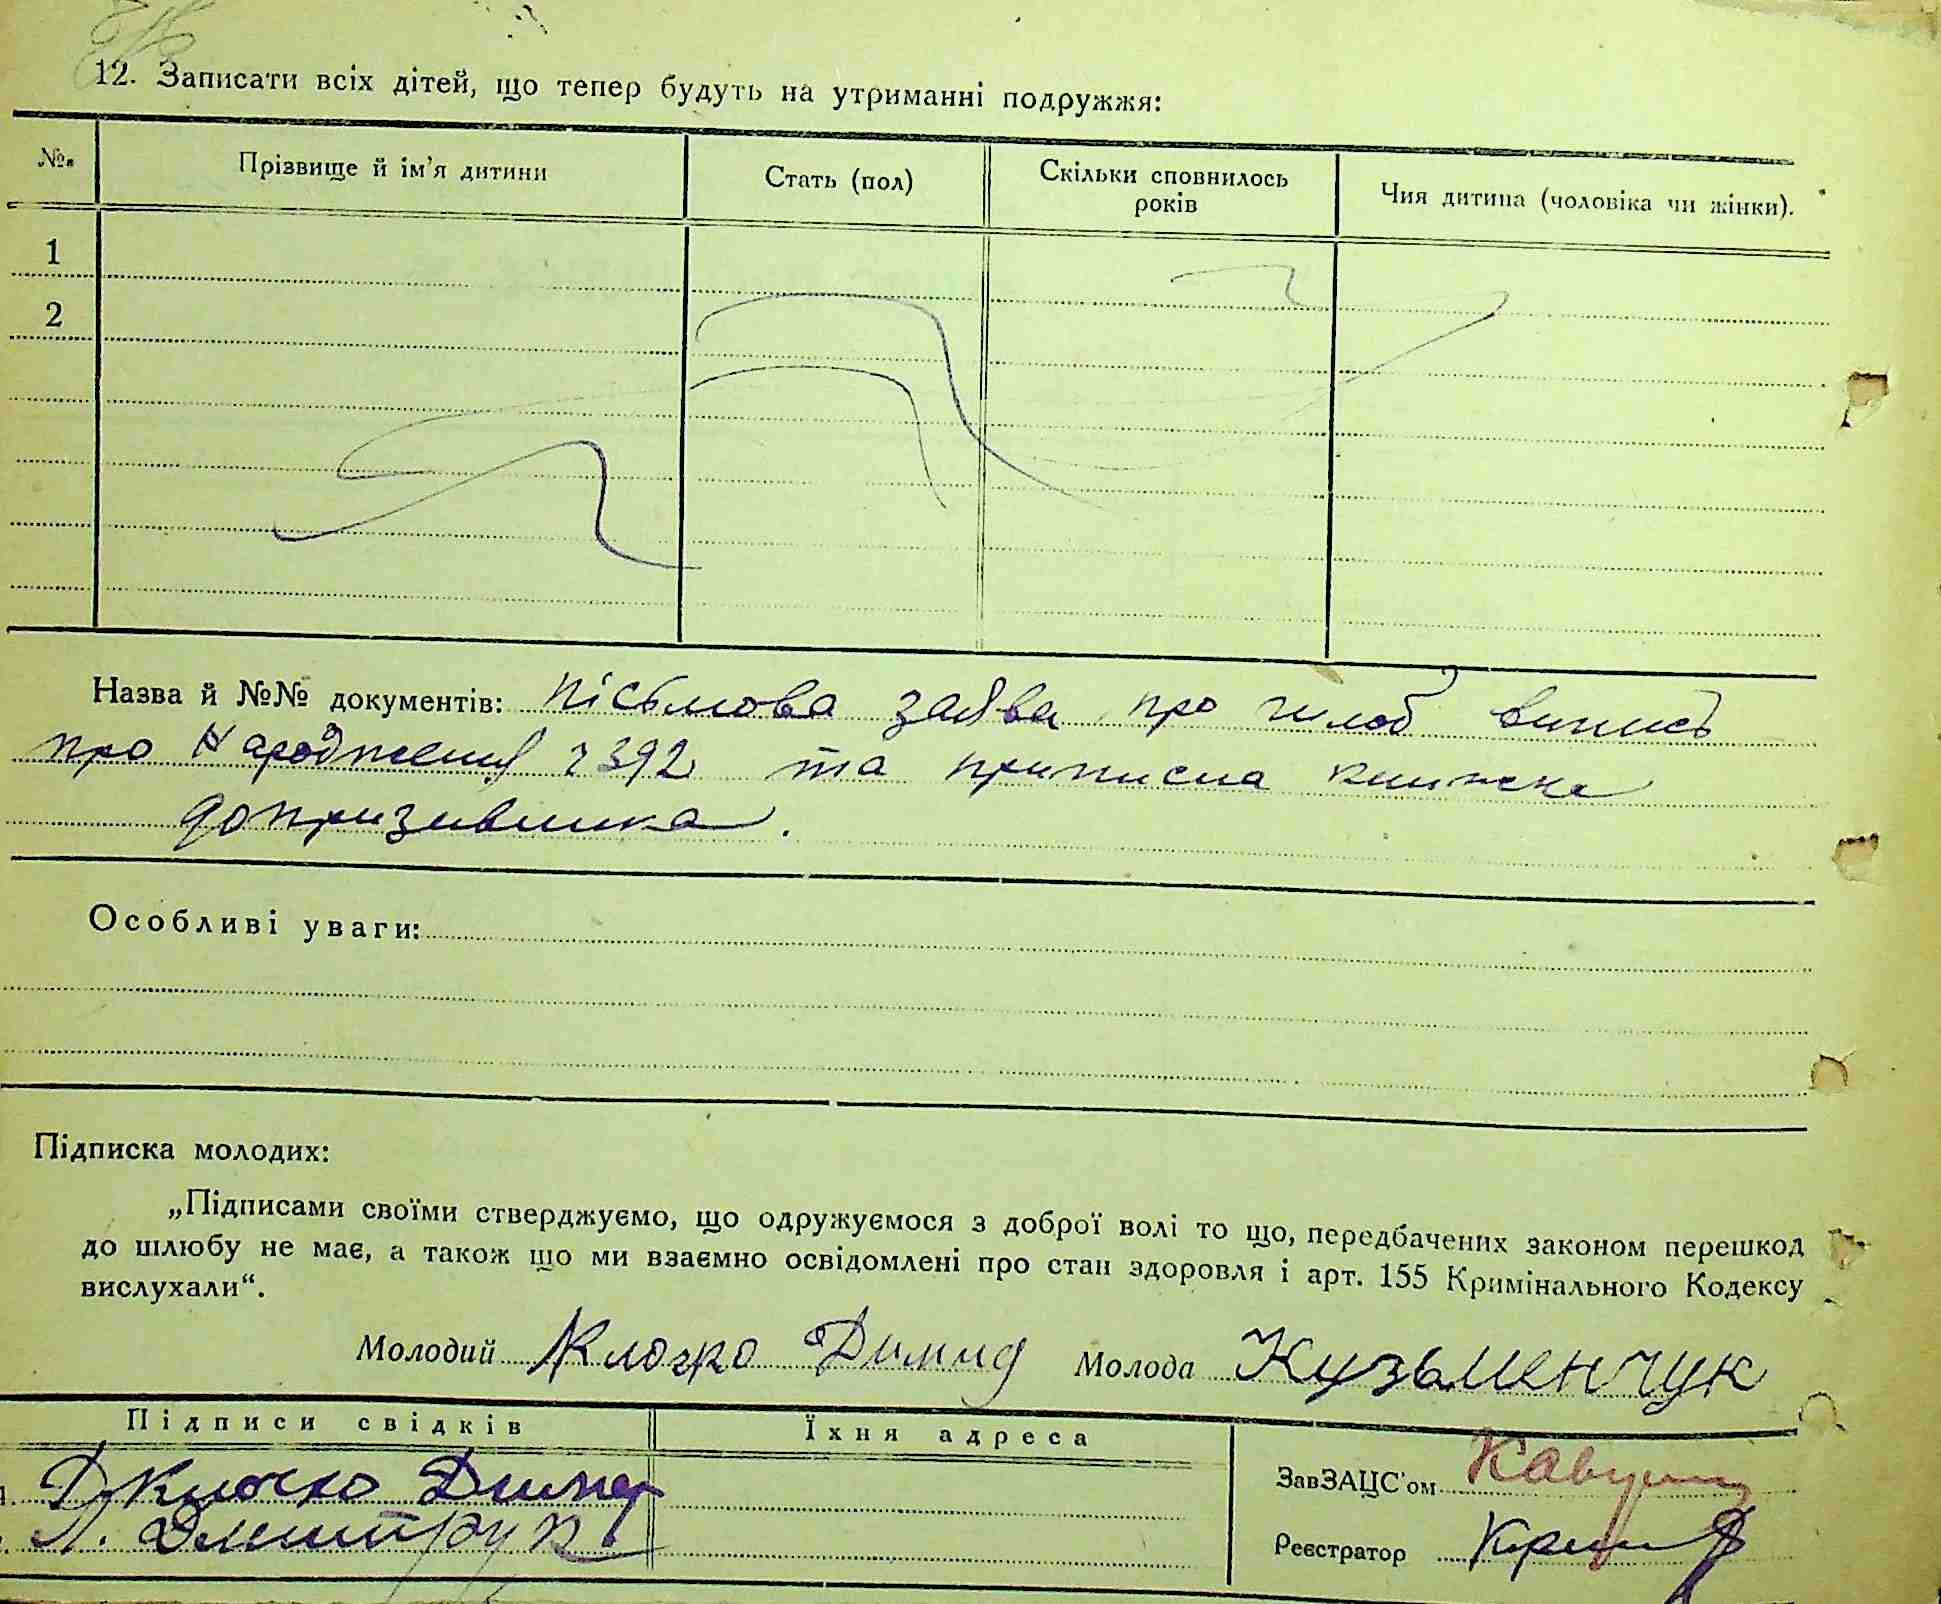 12. Записати всіх дітей, що тепер будуть на утриманні подружжя:
№№ Прізвище й ім'я дитини Стать (пол) Скільки сповнилось років Чия дитина (чоловіка чи жінки).
1
2
Назва й №№ документів: пісьмова заява про шлюб випись
про народження ч 392 та приписна книжка
допризивника.
Особливі уваги:
Підписка молодих:
„Підписами своїми стверджуємо, що одружуємося з доброї волі то що, передбачених законом перешкод
до шлюбу не має, а також що ми взаємно освідомлені про стан здоровля і арт. 155 Кримінального Кодексу
вислухали“.
Молодий Клочко Димид Молода Кузьменчук
Підписи свідків Їхня адреса
Клочко
Л. Дмитрук
ЗавЗАЦС'ом
Реєстратор